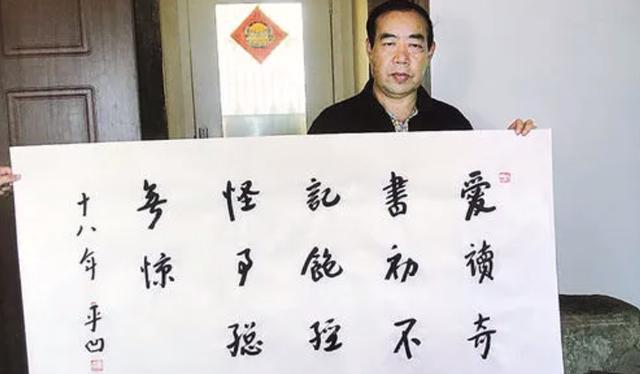 愛讀奇
書初不
記飽經
怪事總
無惊
十八年 平凹